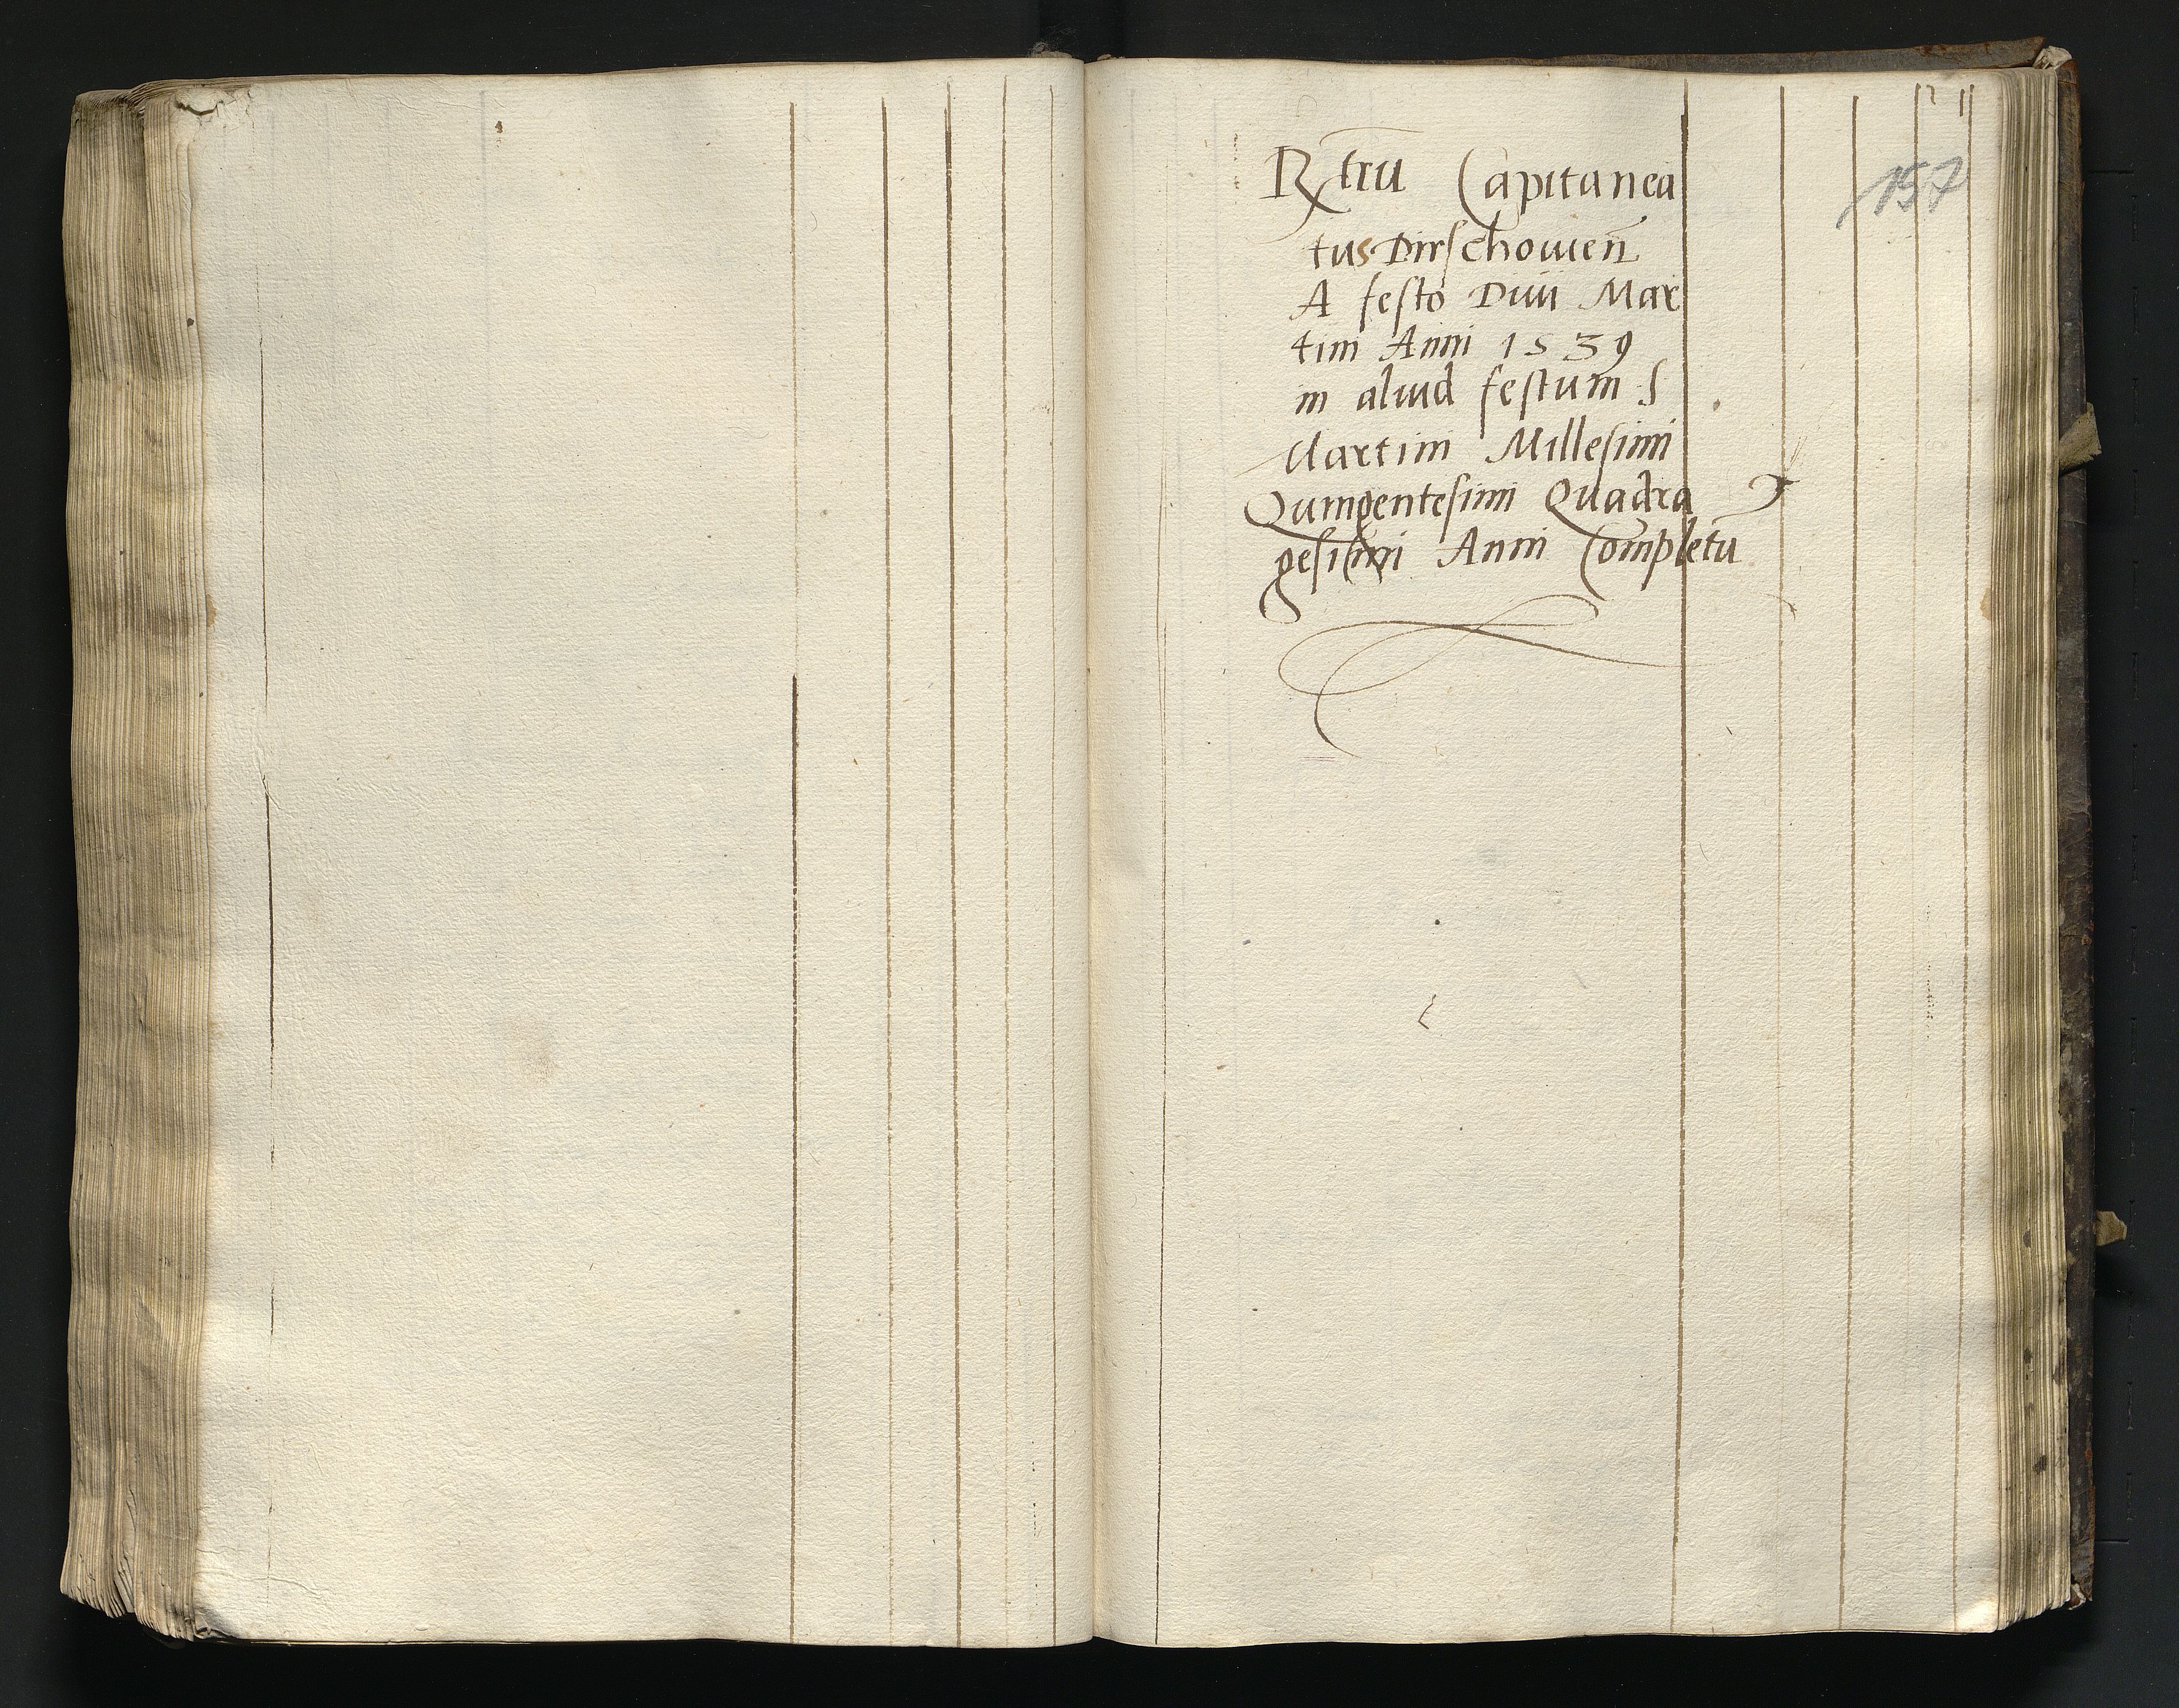 157
Rtru Capitanea
tus Dirschouien̄
A festo Diui Mar
tini Anni 1539
in aliud festum S
Martini Millesimi
Quingentesimi Quadra
gesimi Anni Completū